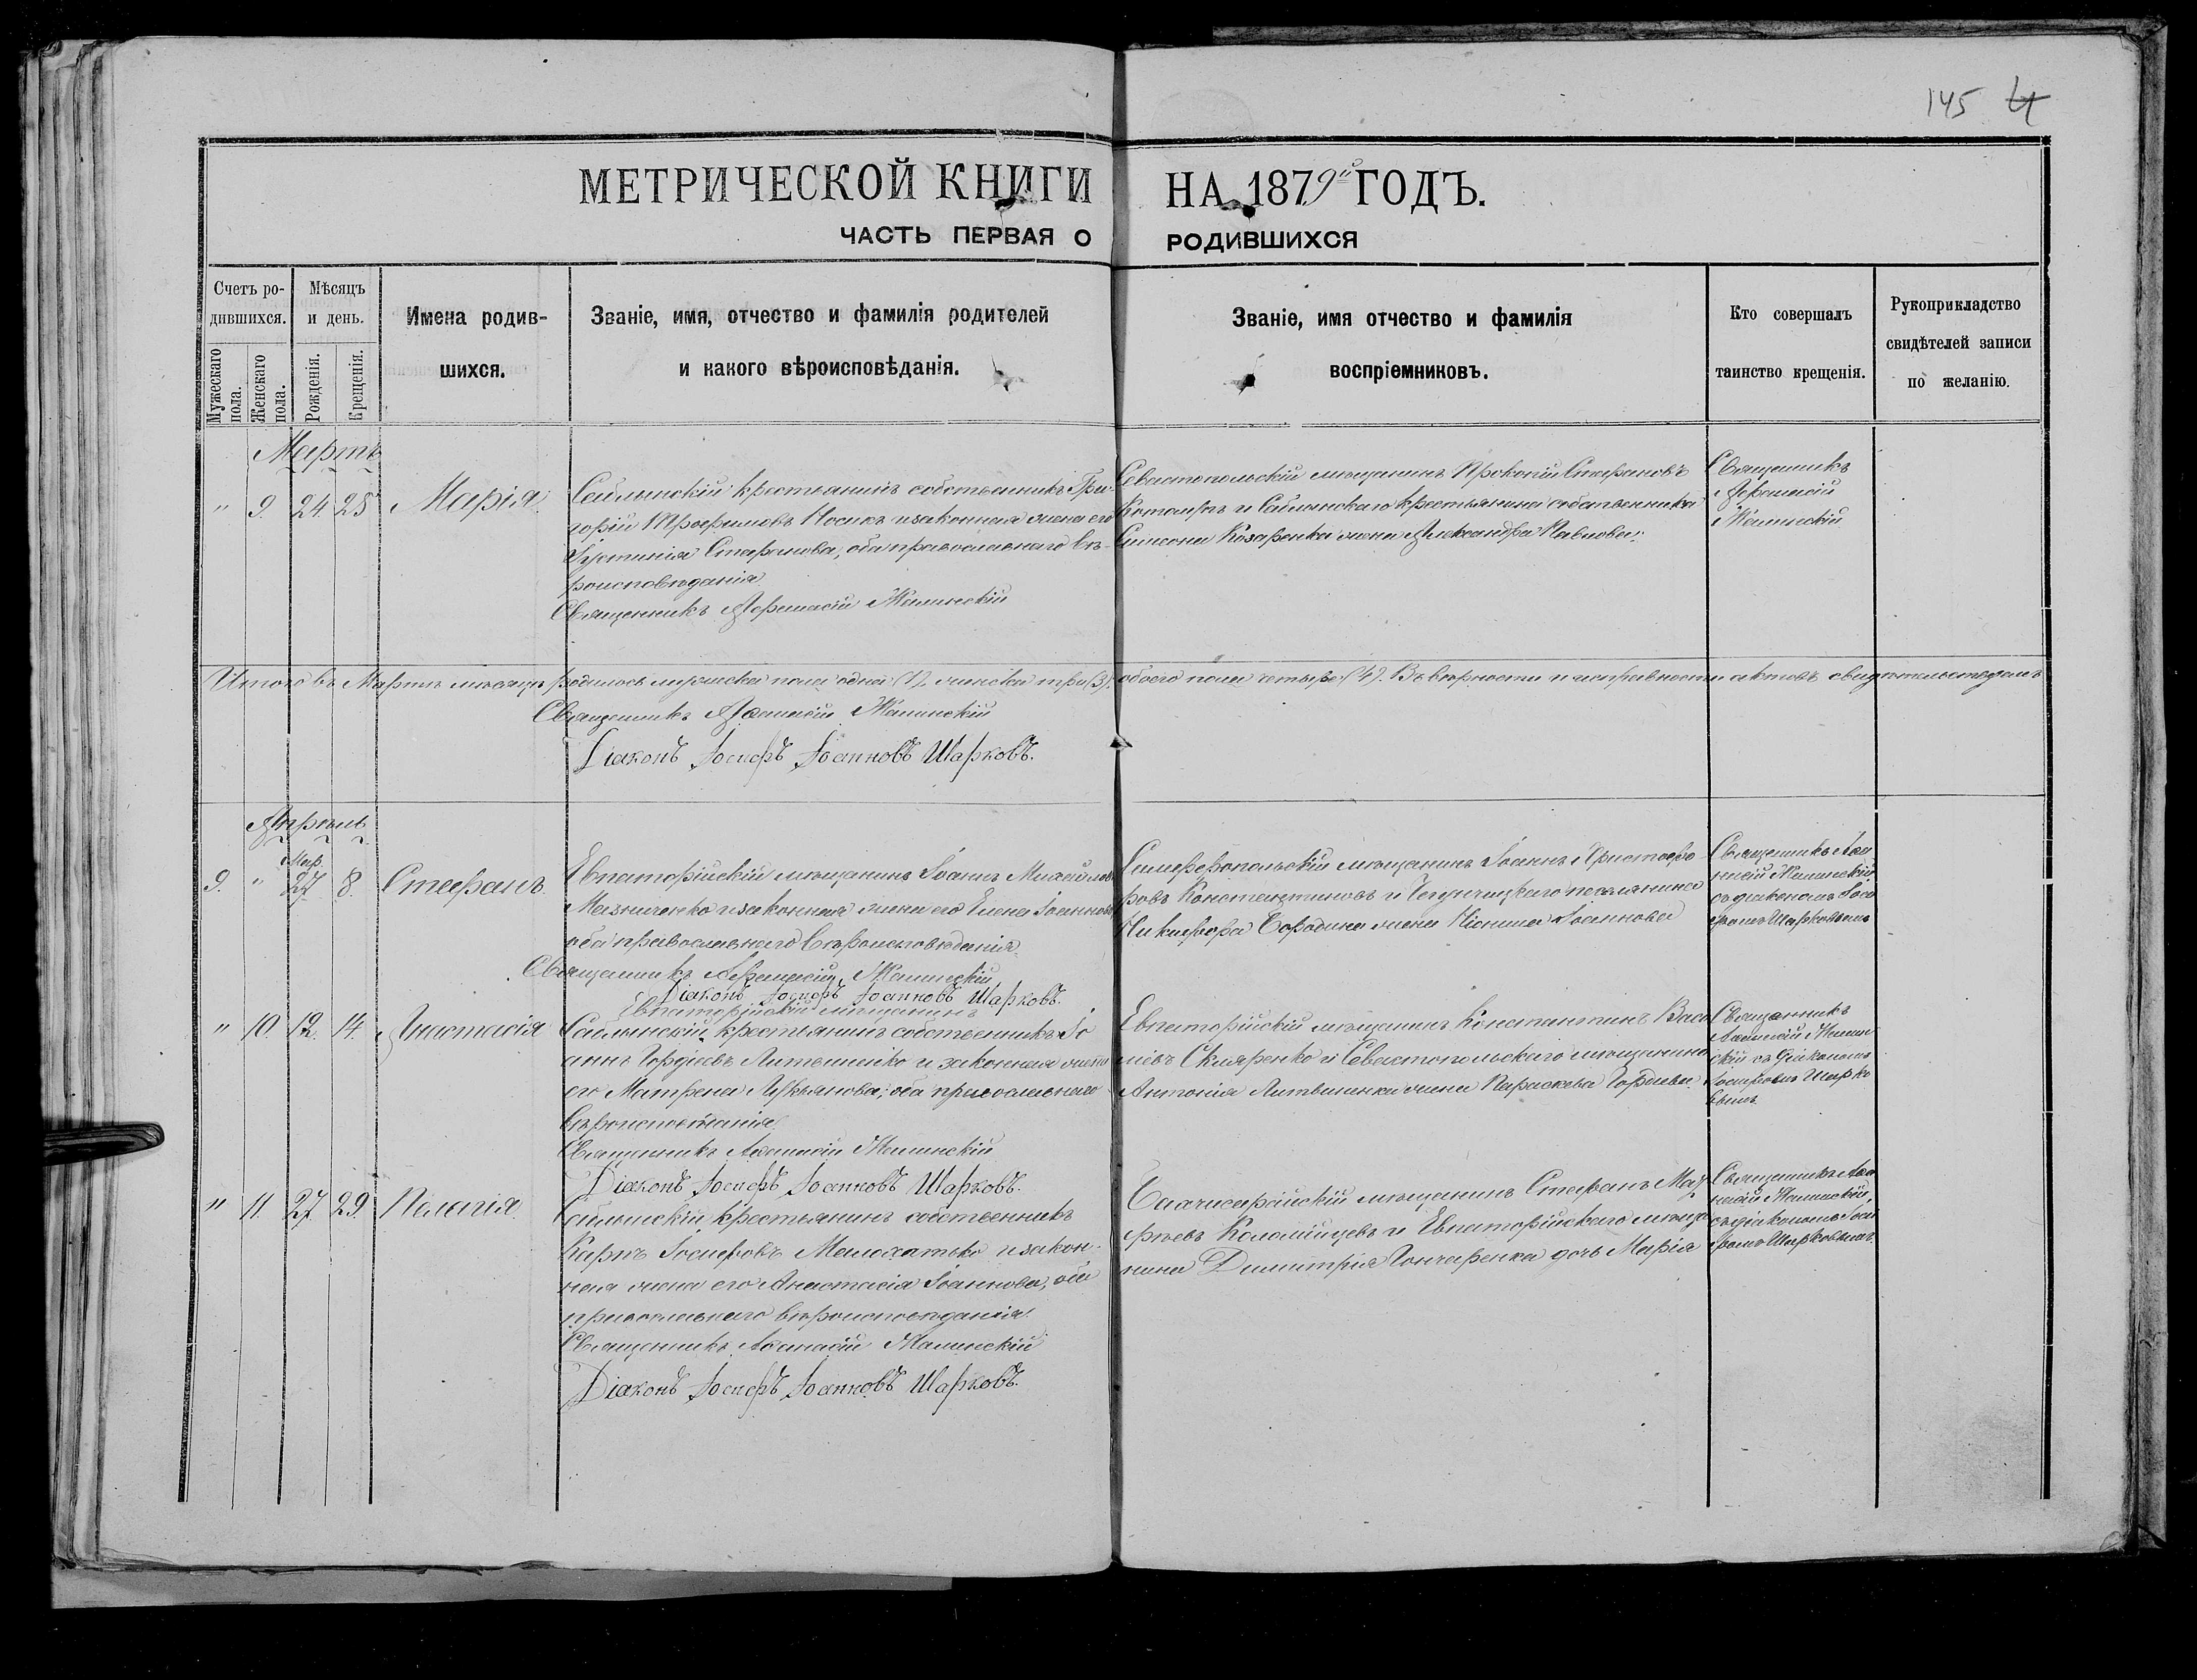 145 4
МЕТРИЧЕСКОЙ КНИГИ НА 1879й ГОДЪ.
ЧАСТЬ ПЕРВАЯ О РОДИВШИХСЯ
Счетъ ро-
дившихся.
Мужескаго
пола.
Женскаго
пола.
Мѣсяцъ
и день.
Рожденія.
Крещенія.
Имена родив-
шихся.
Званіе, имя, отчество и фамилія родителей
и какого вѣроисповѣданія.
Званіе, имя отчество и фамилія
воспріемниковъ.
Кто совершалъ
таинство крещенія.
Рукоприкладство
свидѣтелей записи
по желанію.
Мартъ
" 9. 24. 25. Марія.
Саблынскій крестьянинъ собственникъ Гри-
горій Трофимовъ Носикъ и законная жена его
Іустинія Стефанова, оба православнаго вѣ-
роисповѣданія
Священникъ Афанасій Жалинскій
Севастопольскій мѣщанинъ Прокопій Стефановъ
и Саблынскаго крестьянина собственника
Симеона Козаренка жена Александра Павлова.
Священникъ
Афанасій
Жалинскій
Итого въ Мартѣ мѣсяцѣ родилось мужска пола одна (1), женска три (3), обоего пола четыре (4). Въ вѣрности и исправности актовъ свидѣтельствуемъ
Священникъ Аѳанасій Жалинскій
Діаконъ Іосифъ Іоанновъ Шарковъ.
Апрѣль
Мар.
9. " 27. 8. Стефанъ
Евпаторійскій мѣщанинъ Іоаннъ Михайловъ
Мазниченко и законная жена его Елена Іоаннова
оба православнаго вѣроисповѣданія
Священникъ Афанасій Жалинскій
Діаконъ Іосифъ Іоанновъ Шарковъ.
Симферопольскій мѣщанинъ Іоаннъ Христофо-
ровъ Константиновъ и поселянина
Никифора Бородина жена Іоаннова
Священникъ Аѳа
насій Жалинскій
съ діакономъ Іоси
фомъ Шарковымъ
" 10. 12. 14. Анастасія
Евпаторійскій мѣщанинъ
Саблынскій крестьянинъ собственникъ Іо
аннъ Гордіевъ Литвиненко и законная жена
его Матрена Лукьянова, оба православнаго
вѣроисповѣданія
Священникъ Аѳанасій Жалинскій
Діаконъ Іосифъ Іоанновъ Шарковъ.
Евпаторійскій мѣщанинъ Константинъ Васи
лієвъ Скляренко и Севастопольскаго мѣщанина
Антонія Литвиненка жена Параскева Гордіева
Священникъ
Аѳанасій Жалин
скій съ Діакономъ
Іосифомъ Шарко
вымъ
" 11. 27. 29. Пелагія
Саблынскій крестьянинъ собственникъ
Карпъ Іосифовъ Малохатько и закон-
ная жена его Анастасія Іоаннова, оба
православнаго вѣроисповѣданія
Священникъ Аѳанасій Жалинскій
Діаконъ Іосифъ Іоанновъ Шарковъ.
Бахчисарайскій мѣщанинъ Стефанъ
Коломійцевъ и Евпаторійскаго мѣща
нина Димитрія Гончаренка дочь Марія
Священникъ Аѳа
насій Жалинскій,
съ діакономъ Іоси
фомъ Шарковымъ